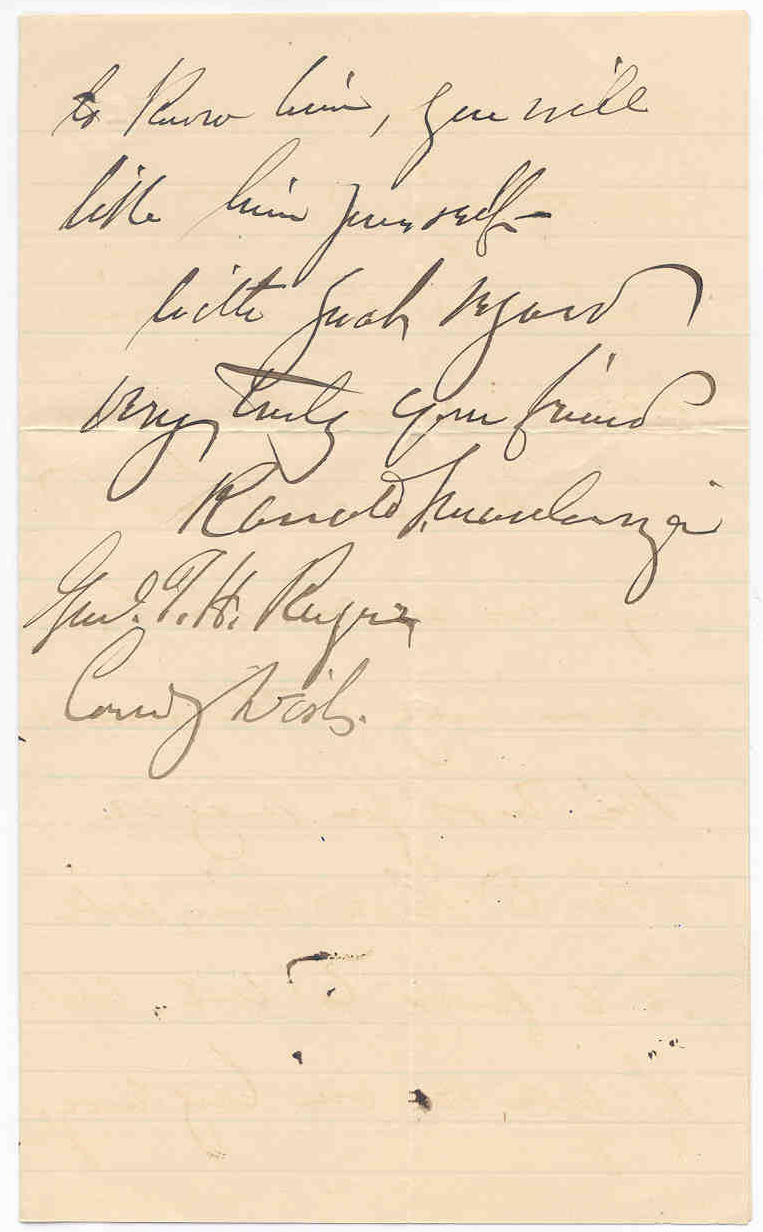 to know him, you will
like him yourself—
With great regard
very truly your friend
Ranald S. Mackenzie
Genl. T. H. Ruger
Comdg Dist.